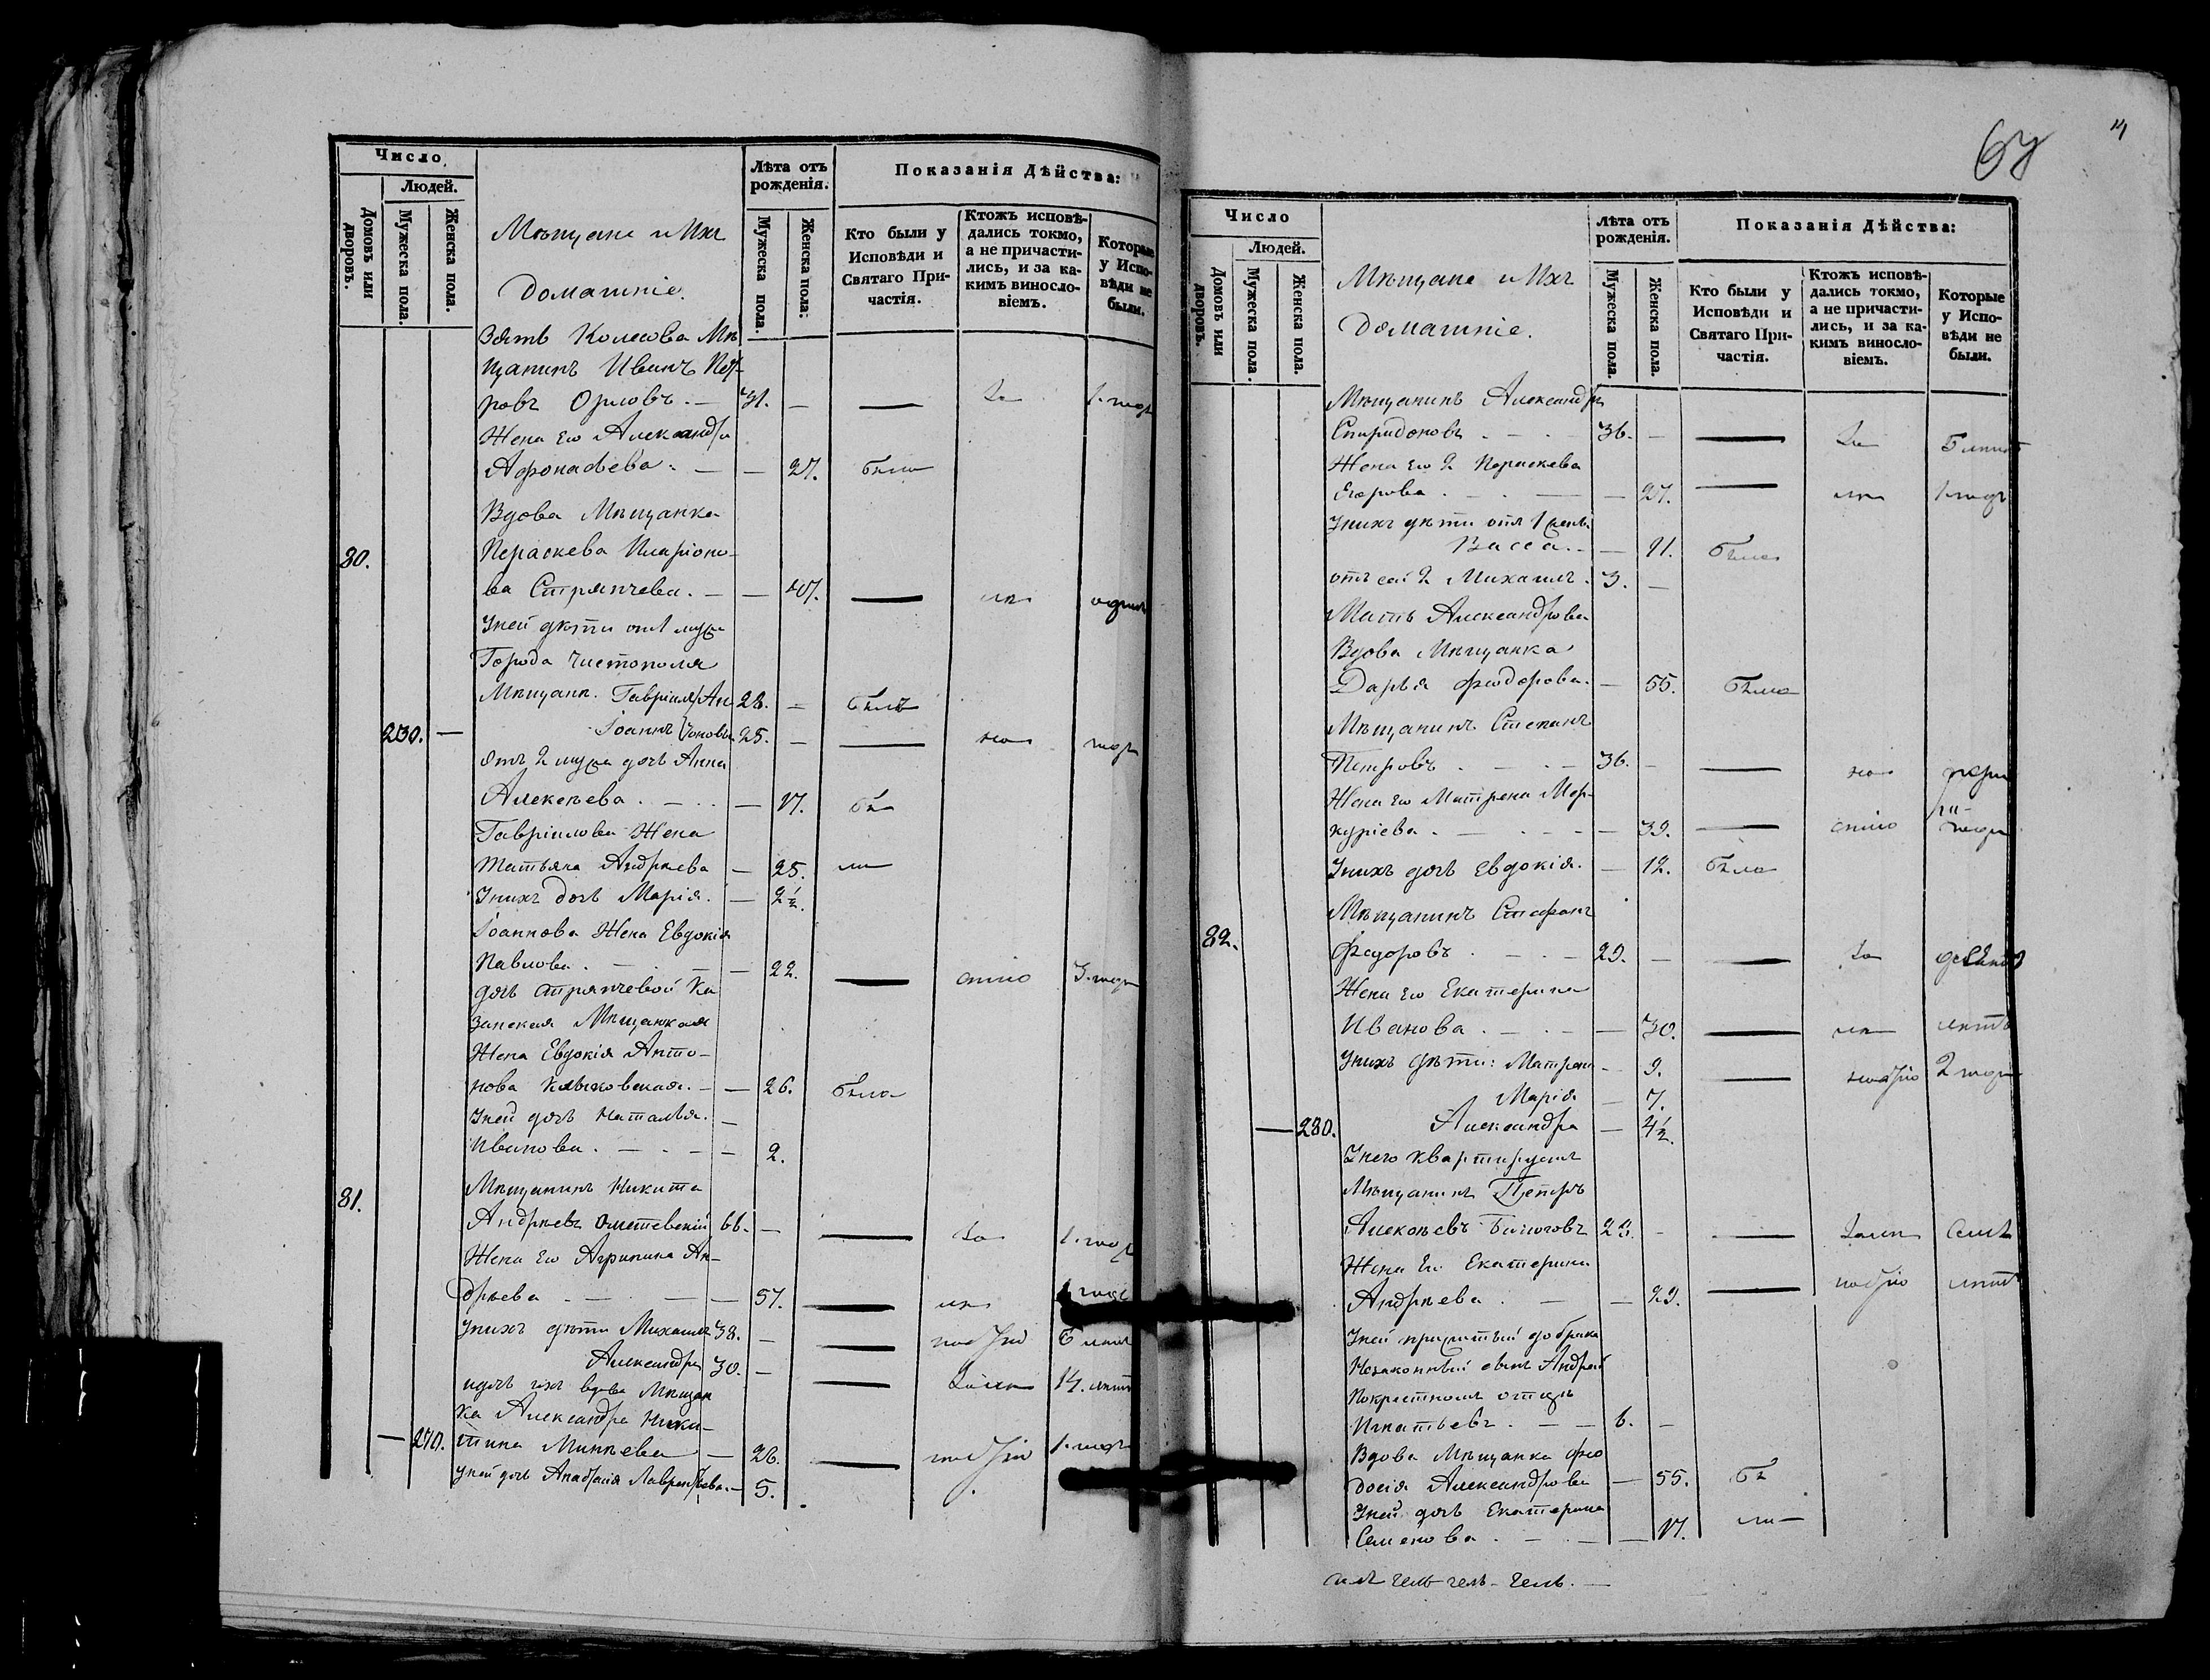 Число
Людей.
Домовъ или дворовъ.
Мужеска пола.
Женска пола.
Мѣщане и Ихъ
Домашніе.
Лѣта отъ рожденія.
Мужеска пола.
Женска пола.
Показанія Дѣйства:
Кто были у Исповѣди и Святаго Причастія.
Ктожъ исповѣдались токмо, а не причастились, и за какимъ винословіемъ.
Которые у Исповѣди не были.
Зять Колесова Мѣ
щанинъ Иванъ Пет
ровъ Орловъ. — 31. —
Жена Его Александра
Афонасьева. — — 27. была
Вдова Мѣщанка
80. Параскева Иларіоно-
ва Стряпчева. — — 47.
У ней дѣти от 1 мужа
Города Чистополя
Мѣщане. Гавріилъ Ан 28. — былъ
230. — Іоаннъ тоновы 25. —
отъ 2 мужа дочь Анна
Алексѣева. — — 17. бы
Гавріилова Жена
Татьяна Андреева — 25. ли
У нихъ дочь Марія. — 2½.
Іоаннова Жена Евдокія
Павлова. — — 22. 3. года
дочь Стряпчевой Ка
занская Мѣщанская
Жена Евдокія Анто-
нова — — 26. была
У ней дочь Наталья.
Иванова. — — 2.
81. Мѣщанинъ Никита
Андреевъ 66. — 1. годъ
Жена Его Агрипина Ан-
дреева — — 57. 1 годъ
У нихъ дѣти Михаилъ 38. — 6 лѣтъ
Александръ 30. — 14. лѣтъ
и дочь ихъ вдова Мѣщан
ка Александра Ники-
— 270. тина Минѣева — 26. 1. годъ
У ней дочь Анастасія Лаврентьева. — 5.
67
Число
Людей.
Домовъ или дворовъ.
Мужеска пола.
Женска пола.
Мѣщане и Ихъ
Домашніе.
Лѣта отъ рожденія.
Мужеска пола.
Женска пола.
Показанія Дѣйства:
Кто были у Исповѣди и Святаго Причастія.
Ктожъ исповѣдались токмо, а не причастились, и за какимъ винословіемъ.
Которые у Исповѣди не были.
Мѣщанинъ Александръ
Спиридоновъ — 36. — За 5 лѣтъ
Жена Его 2 Параскева
Егорова. — — 27. 1 годъ
У нихъ дѣти отъ 1 жены
Васса. — — 11. была
отъ сей 2 Михаилъ. 3. —
Мать Александрова
Вдова Мѣщанка
Дарья Феодорова. — 55. была
Мѣщанинъ Степанъ
Петровъ — 36. —
Жена Его Матрена Мер-
куріева. — — 39.
У нихъ дочь Евдокія. — 12. была
Мѣщанинъ Стефанъ
82. Федоровъ — 29. — За
Жена Его Екатерина
Иванова. — — 30. лѣтъ
У нихъ дѣти: Матрона — 9. 2 года
Марія — 7.
— 280. Александра — 4½.
У него квартируетъ
Мѣщанинъ Петръ
Алексѣевъ 23. — семь
Жена Его Екатерина
Андреева. — — 29. лѣтъ
У ней прижитый до брака
Незаконный сынъ Андрей
По крестномъ отцѣ
Игнатьевъ. — 6. —
Вдова Мѣщанка Фео
досія Александрова — 55. бы
У ней дочь Екатерина
Семенова. — — 17. ли